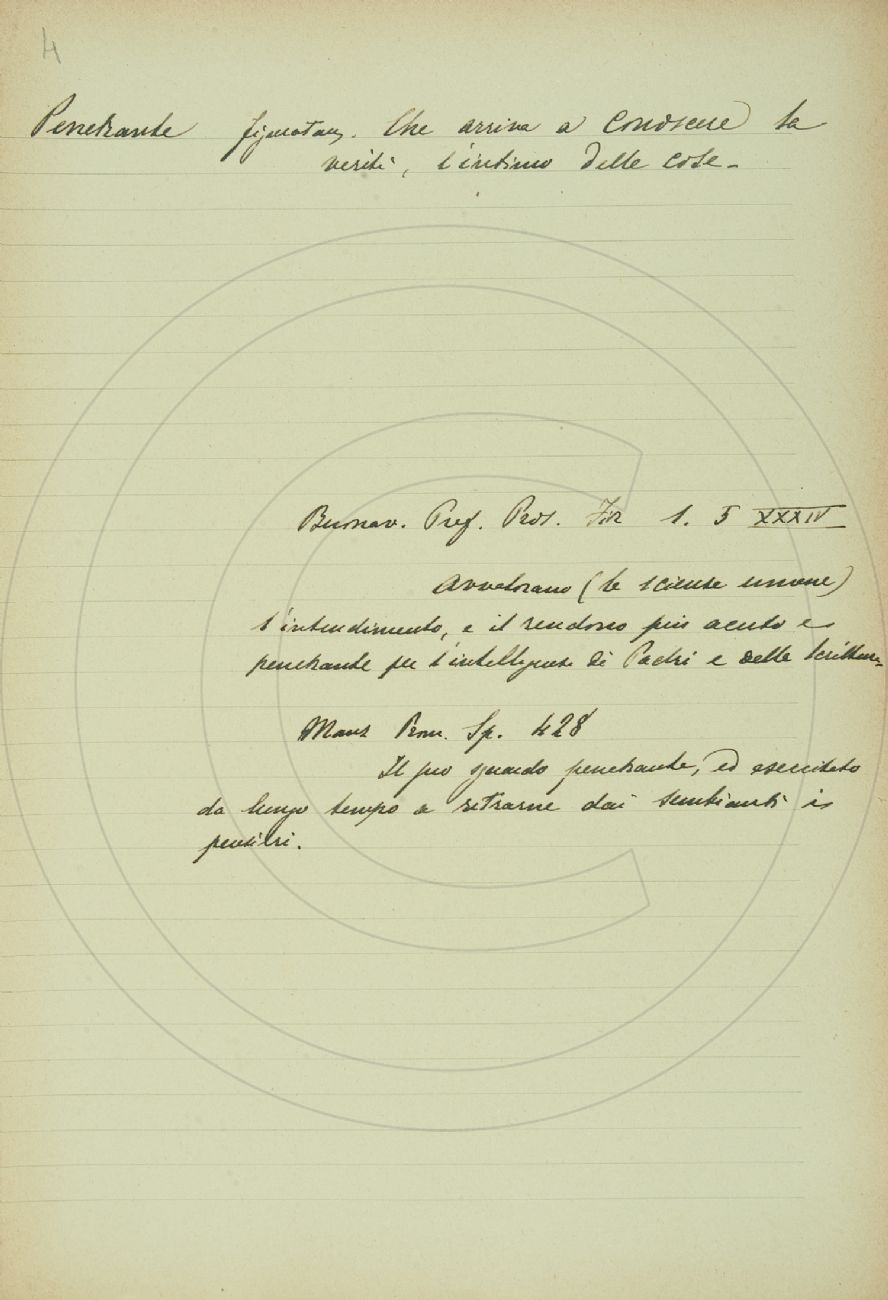 4
Penetrante figuratam. Che arriva a conoscere la
verità, l'intimo delle cose -
Buonav. Pref. Pros. Fir 1. 5 XXXIV
Avvalorano (le scienze umane)
l'intendimento, e il rendono più acuto e
penetrante per l'intelligenza di Padri e delle Scritture
Manz Prom. Sp. 428
Il suo sguardo penetrante, ed esercitato
da lungo tempo a ritrarne dai sembianti i
pensieri.